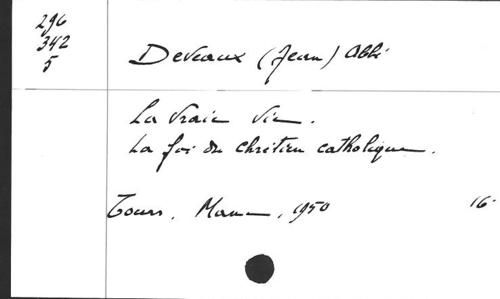 296
342
5
Deveaux (Jean) Abbé
La vraie vie.
La foi du chrétien catholique.
Tours, Mame, 1950 16-